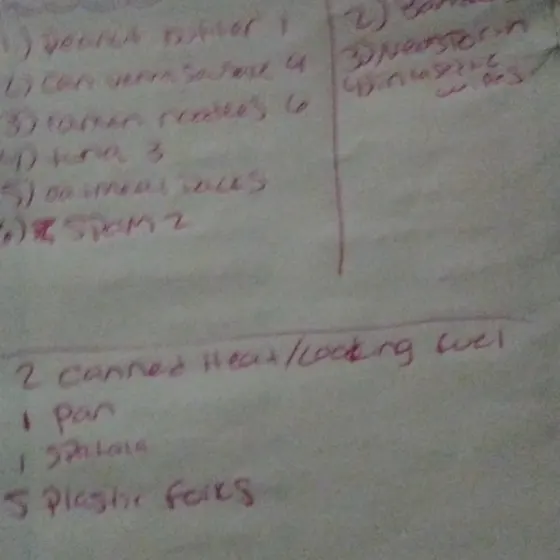 1) Peanut butter 1
2) can vienna sausage 4
3) ramen noodles 6
4) tuna 3
5) oatmeal packs
6) SPAM 2
2)
3) Neosporin
4)
2 canned Heat/cooking fuel
1 pan
1 spatula
5 Plastic Forks